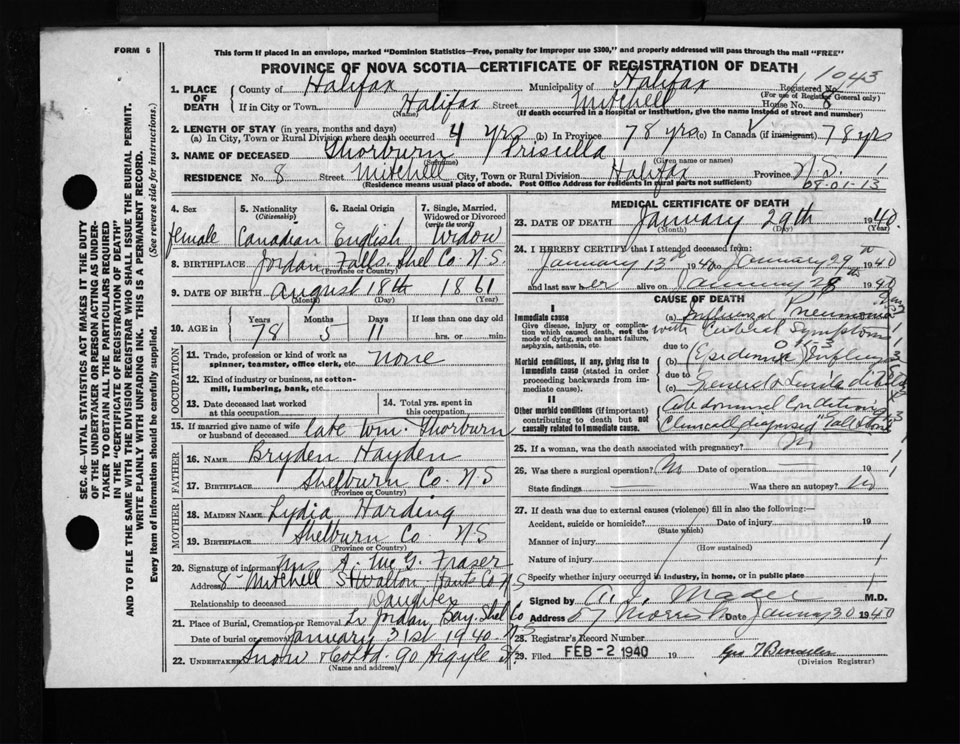 FORM 6
This form if placed in an envelope, marked "Dominion Statistics—Free, penalty for improper use $300," and properly addressed will pass through the mail "FREE"
PROVINCE OF NOVA SCOTIA—CERTIFICATE OF REGISTRATION OF DEATH
SEC. 46—VITAL STATISTICS ACT MAKES IT THE DUTY
OF THE UNDERTAKER OR PERSON ACTING AS UNDER-
TAKER TO OBTAIN ALL THE PARTICULARS REQUIRED
IN THE "CERTIFICATE OF REGISTRATION OF DEATH"
AND TO FILE THE SAME WITH THE DIVISION REGISTRAR WHO SHALL ISSUE THE BURIAL PERMIT.
WRITE PLAINLY WITH UNFADING INK. THIS IS A PERMANENT RECORD.
Every item of information should be carefully supplied. (See reverse side for instructions.)
1. PLACE OF DEATH County of Halifax Municipality of Halifax Registered No. 1043
(For use of Registrar General only)
If in City or Town Halifax Street Mitchell House No. 8
(Name) (If death occurred in a Hospital or institution, give the name instead of street and number)
2. LENGTH OF STAY (in years, months and days)
(a) In City, Town or Rural Division where death occurred 4 yrs (b) In Province 78 yrs (c) In Canada (if immigrant) 78 yrs
3. NAME OF DECEASED Thorburn Priscilla
(Surname) (Given name or names)
RESIDENCE No. 8 Street Mitchell City, Town or Rural Division Halifax Province N.S.
(Residence means usual place of abode. Post Office Address for residents in rural parts not sufficient) 08-01-13
4. Sex female
5. Nationality (Citizenship) Canadian
6. Racial Origin English
7. Single, Married, Widowed or Divorced (write the word) Widow
8. BIRTHPLACE Jordan Falls Shel Co N.S.
(Province or Country)
9. DATE OF BIRTH August 18th 1861
(Month) (Day) (Year)
10. AGE in Years 78 Months 5 Days 11 If less than one day old
hrs. or min.
OCCUPATION
11. Trade, profession or kind of work as spinner, teamster, office clerk, etc. none
12. Kind of industry or business, as cotton-mill, lumbering, bank, etc.
13. Date deceased last worked at this occupation
14. Total yrs. spent in this occupation
15. If married give name of wife or husband of deceased late Wm. Thorburn
FATHER
16. Name Bryden Hayden
17. Birthplace Shelburn Co. N.S
(Province or Country)
MOTHER
18. Maiden Name Lydia Harding
19. Birthplace Shelburn Co N.S
(Province or Country)
20. Signature of informant Mrs A. McG. Fraser
Address 8 Mitchell St Walton, Hants Co N.S
Relationship to deceased Daughter
21. Place of Burial, Cremation or Removal Lr Jordan Bay. Shel Co N.S
Date of burial or removal January 31st 1940
22. Undertaker Snow & Co Ltd. 90 Argyle St.
(Name and address)
MEDICAL CERTIFICATE OF DEATH
23. DATE OF DEATH January 29th 1940.
(Month) (Day) (Year)
24. I HEREBY CERTIFY that I attended deceased from:
January 13th 1940 to January 29th 1940
and last saw her alive on January 28 1940
CAUSE OF DEATH
I
Immediate cause
Give disease, injury or complication which caused death, not the mode of dying, such as heart failure, asphyxia, asthenia, etc.
(a) Influenzal Pneumonia
with Cerebral Symptoms
due to
Morbid conditions, if any, giving rise to immediate cause (stated in order proceeding backwards from immediate cause).
(b) Epidemic Influenza
due to
(c) General & Senile debility
II
Other morbid conditions (if important) contributing to death but not causally related to immediate cause.
Abdominal Condition
Clinically diagnosed "Gall Stones"
25. If a woman, was the death associated with pregnancy? No
26. Was there a surgical operation? No Date of operation 19
State findings Was there an autopsy? No
27. If death was due to external causes (violence) fill in also the following:
Accident, suicide or homicide? Date of injury 19
(State which)
Manner of injury
(How sustained)
Nature of injury
Specify whether injury occurred in industry, in home, or in public place
Signed by A. J. Mader M.D.
Address 87 Morris St Date January 30 1940
28. Registrar's Record Number
29. Filed FEB - 2 1940 19
(Division Registrar)